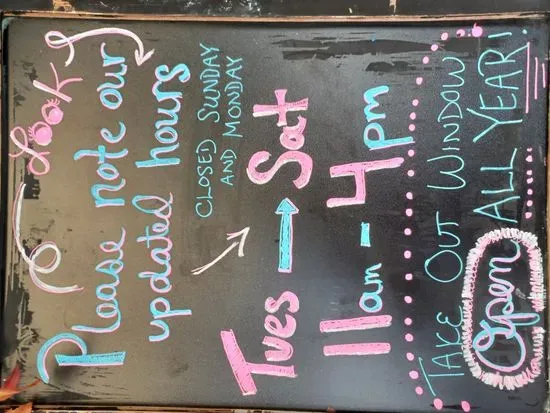 Look
Please note our
updated hours
CLOSED SUNDAY
AND MONDAY
Tues → Sat
11am - 4pm
TAKE OUT WINDOW
Open ALL YEAR!